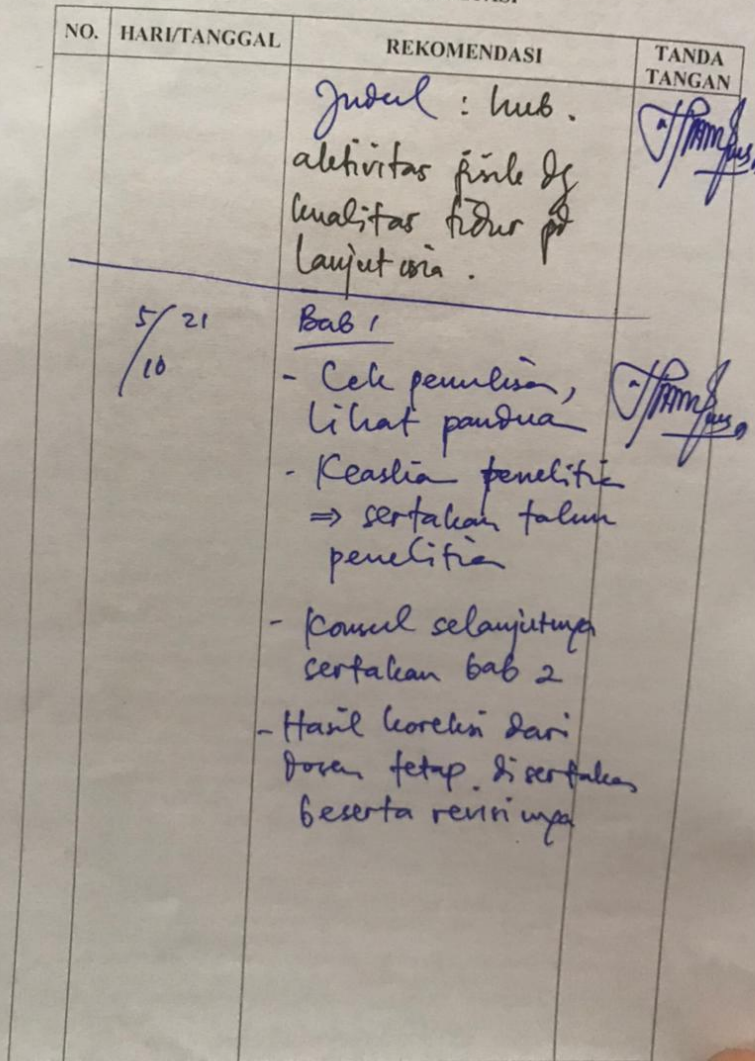 NO.
HARI/TANGGAL
REKOMENDASI
TANDA
TANGAN
Judul : hub.
aktivitas fisik dg
kualitas tidur pd
lanjut usia.
5/10 21
Bab 1
- Cek penulisan,
lihat panduan
- Keaslian penelitian
⇒ sertakan tahun
penelitian
- Konsul selanjutnya
sertakan bab 2
- Hasil koreksi dari
dosen tetap disertakan
beserta revisinya